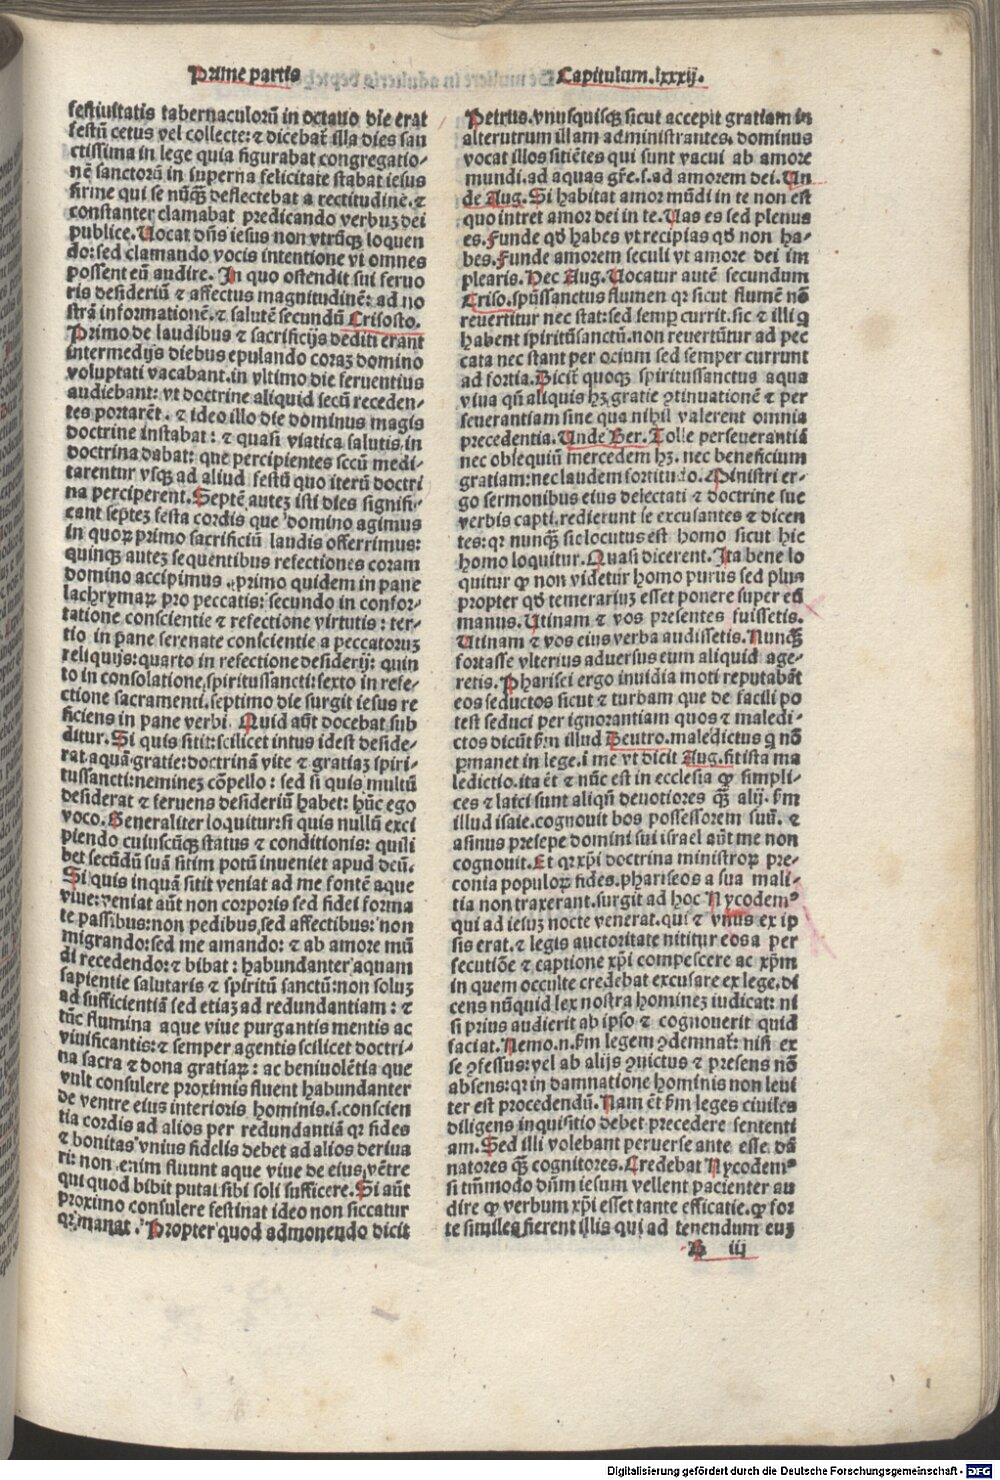 Prime partis
Capitulum. lxxxij.
festiuitatis tabernaculorū in octauo die erat
festū cetus vel collecte: ⁊ dicebat̄ illa dies san
ctissima in lege quia figurabat congregatio⸗
nē sanctorū in superna felicitate stabat iesus
firme qui se nūq̄ꝫ deflectebat a rectitudinē. ⁊
constanter clamabat predicando verbuꝫ dei
publice. Uocat dn̄s iesus non vtcūqꝫ loquen
do: sed clamando vocis intentione vt omnes
possent eū audire. In quo ostendit sui feruo
ris desideriū ⁊ affectus magnitudinē: ad no
strā informationē. ⁊ salutē secundū Crisosto.
Primo de laudibus ⁊ sacrificijs dediti erant
intermedijs diebus epulando coraꝫ domino
voluptati vacabant. in vltimo die feruentius
audiebant: vt doctrine aliquid secū receden⸗
tes portarēt. ⁊ ideo illo die dominus magis
doctrine instabat: ⁊ quasi viatica salutis in
doctrina dabat: que percipientes secū medi⸗
tarentur vsqꝫ ad aliud festū quo iterū doctri
na perciperent. Septē auteꝫ isti dies signifi⸗
cant septeꝫ festa cordis que domino agimus
in quoꝝ primo sacrificiū laudis offerrimus:
quinqꝫ auteꝫ sequentibus refectiones coram
domino accipimus. primo quidem in pane
lachrymaꝝ pro peccatis: secundo in confor⸗
tatione conscientie ⁊ refectione virtutis: ter⸗
tio in pane serenate conscientie a peccatoruꝫ
reliquijs: quarto in refectione desiderij: quin
to in consolatione spiritussancti: sexto in refe⸗
ctione sacramenti. septimo die surgit iesus re
ficiens in pane verbi. Quid aūt docebat sub
ditur. Si quis sitit: scilicet intus idest deside⸗
rat aquā gratie: doctrinā vite ⁊ gratiaꝫ spiri⸗
tussancti: nemineꝫ cōpello: sed si quis multū
desiderat ⁊ feruens desideriū habet: hūc ego
voco. Generaliter loquitur: si quis nullū exci
piendo cuiuscūqꝫ status ⁊ conditionis: quili
bet secūdū suā sitim potū inueniet apud deū.
Si quis inquā sitit veniat ad me fontē aque
viue: veniat aūt non corporis sed fidei forma
te passibus: non pedibus, sed affectibus: non
migrando: sed me amando: ⁊ ab amore mū
di recedendo: ⁊ bibat: habundanter aquam
sapientie salutaris ⁊ spiritū sanctū: non soluꝫ
ad sufficientiā sed etiaꝫ ad redundantiam: ⁊
tūc flumina aque viue purgantis mentis ac
viuificantis: ⁊ semper agentis scilicet doctri⸗
na sacra ⁊ dona gratiaꝝ: ac beniuolētia que
vult consulere proximis fluent habundanter
de ventre eius interioris hominis. s. conscien
tia cordis ad alios per redundantiā qꝛ fides
⁊ bonitas vnius fidelis debet ad alios deriua
ri: non enim fluunt aque viue de eius vētre
qui quod bibit putat sibi soli sufficere. Si aūt
proximo consulere festinat ideo non siccatur
qꝛ manat. Propter quod admonendo dicit
Petrus. vnusquisqꝫ sicut accepit gratiam in
alterutrum illam administrantes. dominus
vocat illos sitiētes qui sunt vacui ab amore
mundi. ad aquas gr̄e. s. ad amorem dei. Un
de Aug. Si habitat amor mūdi in te non est
quo intret amor dei in te. Uas es sed plenus
es. Funde qd̓ habes vt recipias qd̓ non ha⸗
bes. Funde amorem seculi vt amore dei im
plearis. Hec Aug. Uocatur autē secundum
Criso. spūssanctus flumen qꝛ sicut flumē nō
reuertitur nec stat: sed semꝑ currit. sic ⁊ illi q̇
habent spiritūsanctū. non reuertūtur ad pec
cata nec stant per ocium sed semper currunt
ad fortia. Dicit̄ quoqꝫ spiritussanctus aqua
viua qn̄ aliquis hꝫ gratie ꝯtinuationē ⁊ per
seuerantiam sine qua nihil valerent omnia
precedentia. Unde Ber. Tolle perseuerantiā
nec obsequiū mercedem hꝫ. nec beneficium
gratiam: nec laudem fortitudo. Ministri er⸗
go sermonibus eius delectati ⁊ doctrine sue
verbis capti. redierunt se excusantes ⁊ dicen
tes: qꝛ nunq̄ꝫ sic locutus est homo sicut hic
homo loquitur. Quasi dicerent. Ita bene lo
quitur ꝙ non videtur homo purus sed plus
propter qd̓ temerariuꝫ esset ponere super eū
manus. Utinam ⁊ vos presentes fuissetis.
Utinam ⁊ vos eius verba audissetis. Nunq̄ꝫ
fortasse vlterius aduersus eum aliquid age⸗
retis. Pharisei ergo inuidia moti reputabāt
eos seductos sicut ⁊ turbam que de facili po
test seduci per ignorantiam quos ⁊ maledi⸗
ctos dicūt ẜm illud Deutro. maledictus q̇ nō
ꝑmanet in lege. i me vt dicit Aug. fit ista ma
ledictio. ita ēt ⁊ nūc est in ecclesia ꝙ simpli⸗
ces ⁊ laici sunt aliqn̄ deuotiores q̄ꝫ alij. ẜm
illud isaie. cognouit bos possessorem suū. ⁊
asinus presepe domini sui israel aūt me non
cognouit. Et qꝛ xp̄i doctrina ministroꝝ pre⸗
conia populoꝝ fides. phariseos a sua mali⸗
tia non traxerant. surgit ad hoc Nycodemꝰ
qui ad iesuꝫ nocte venerat. qui ⁊ vnus ex ip
sis erat. ⁊ legis auctoritate nititur eos a per
secutiōe ⁊ captione xp̄i compescere ac xp̄m
in quem occulte credebat excusare ex lege. di
cens nūquid lex nostra homineꝫ iudicat: ni
si prius audierit ab ipso ⁊ cognouerit quid
faciat. Nemo. n. ẜm legem ꝯdemnat̄: nisi ex
se ꝯfessus: vel ab alijs ꝯuictus ⁊ presens nō
absens: qꝛ in damnatione hominis non leui
ter est procedendū. Nam ēt ẜm leges ciuiles
diligens inquisitio debet precedere sententi
am. Sed illi volebant peruerse ante esse dā
natores q̄ꝫ cognitores. Credebat Nycodemꝰ
si tm̄modo dn̄m iesum vellent pacienter au
dire ꝙ verbum xp̄i esset tante efficatie. ꝙ for
te similes fierent illis qui ad tenendum euꝫ
B iij
Digitalisierung gefördert durch die Deutsche Forschungsgemeinschaft - DFG